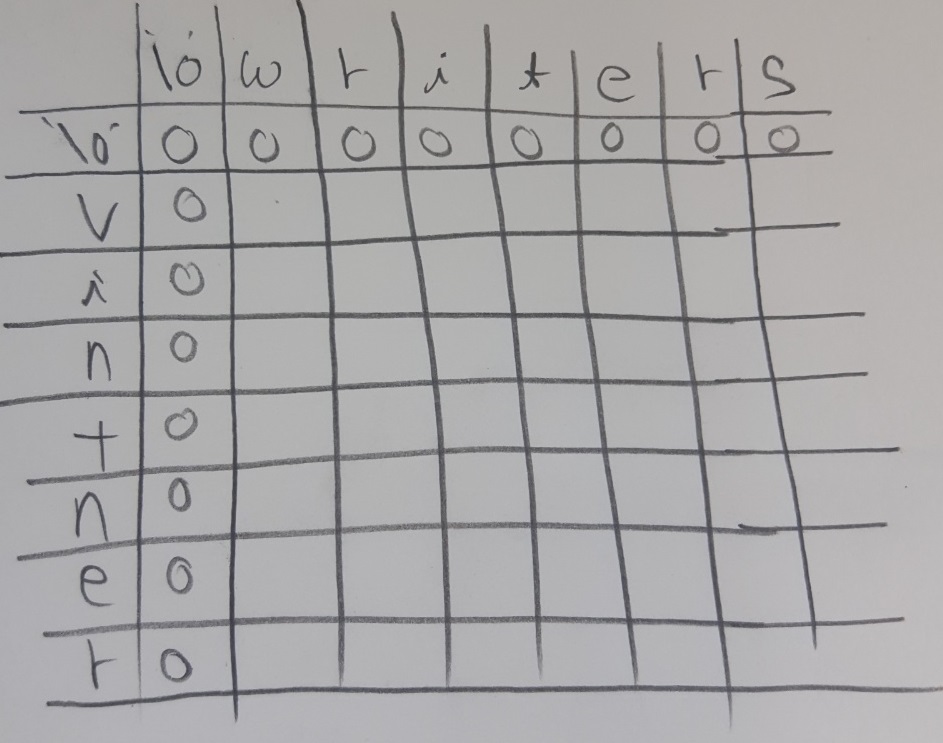 \0 w r i t e r s
\0 0 0 0 0 0 0 0 0
v 0
i 0
n 0
t 0
n 0
e 0
r 0